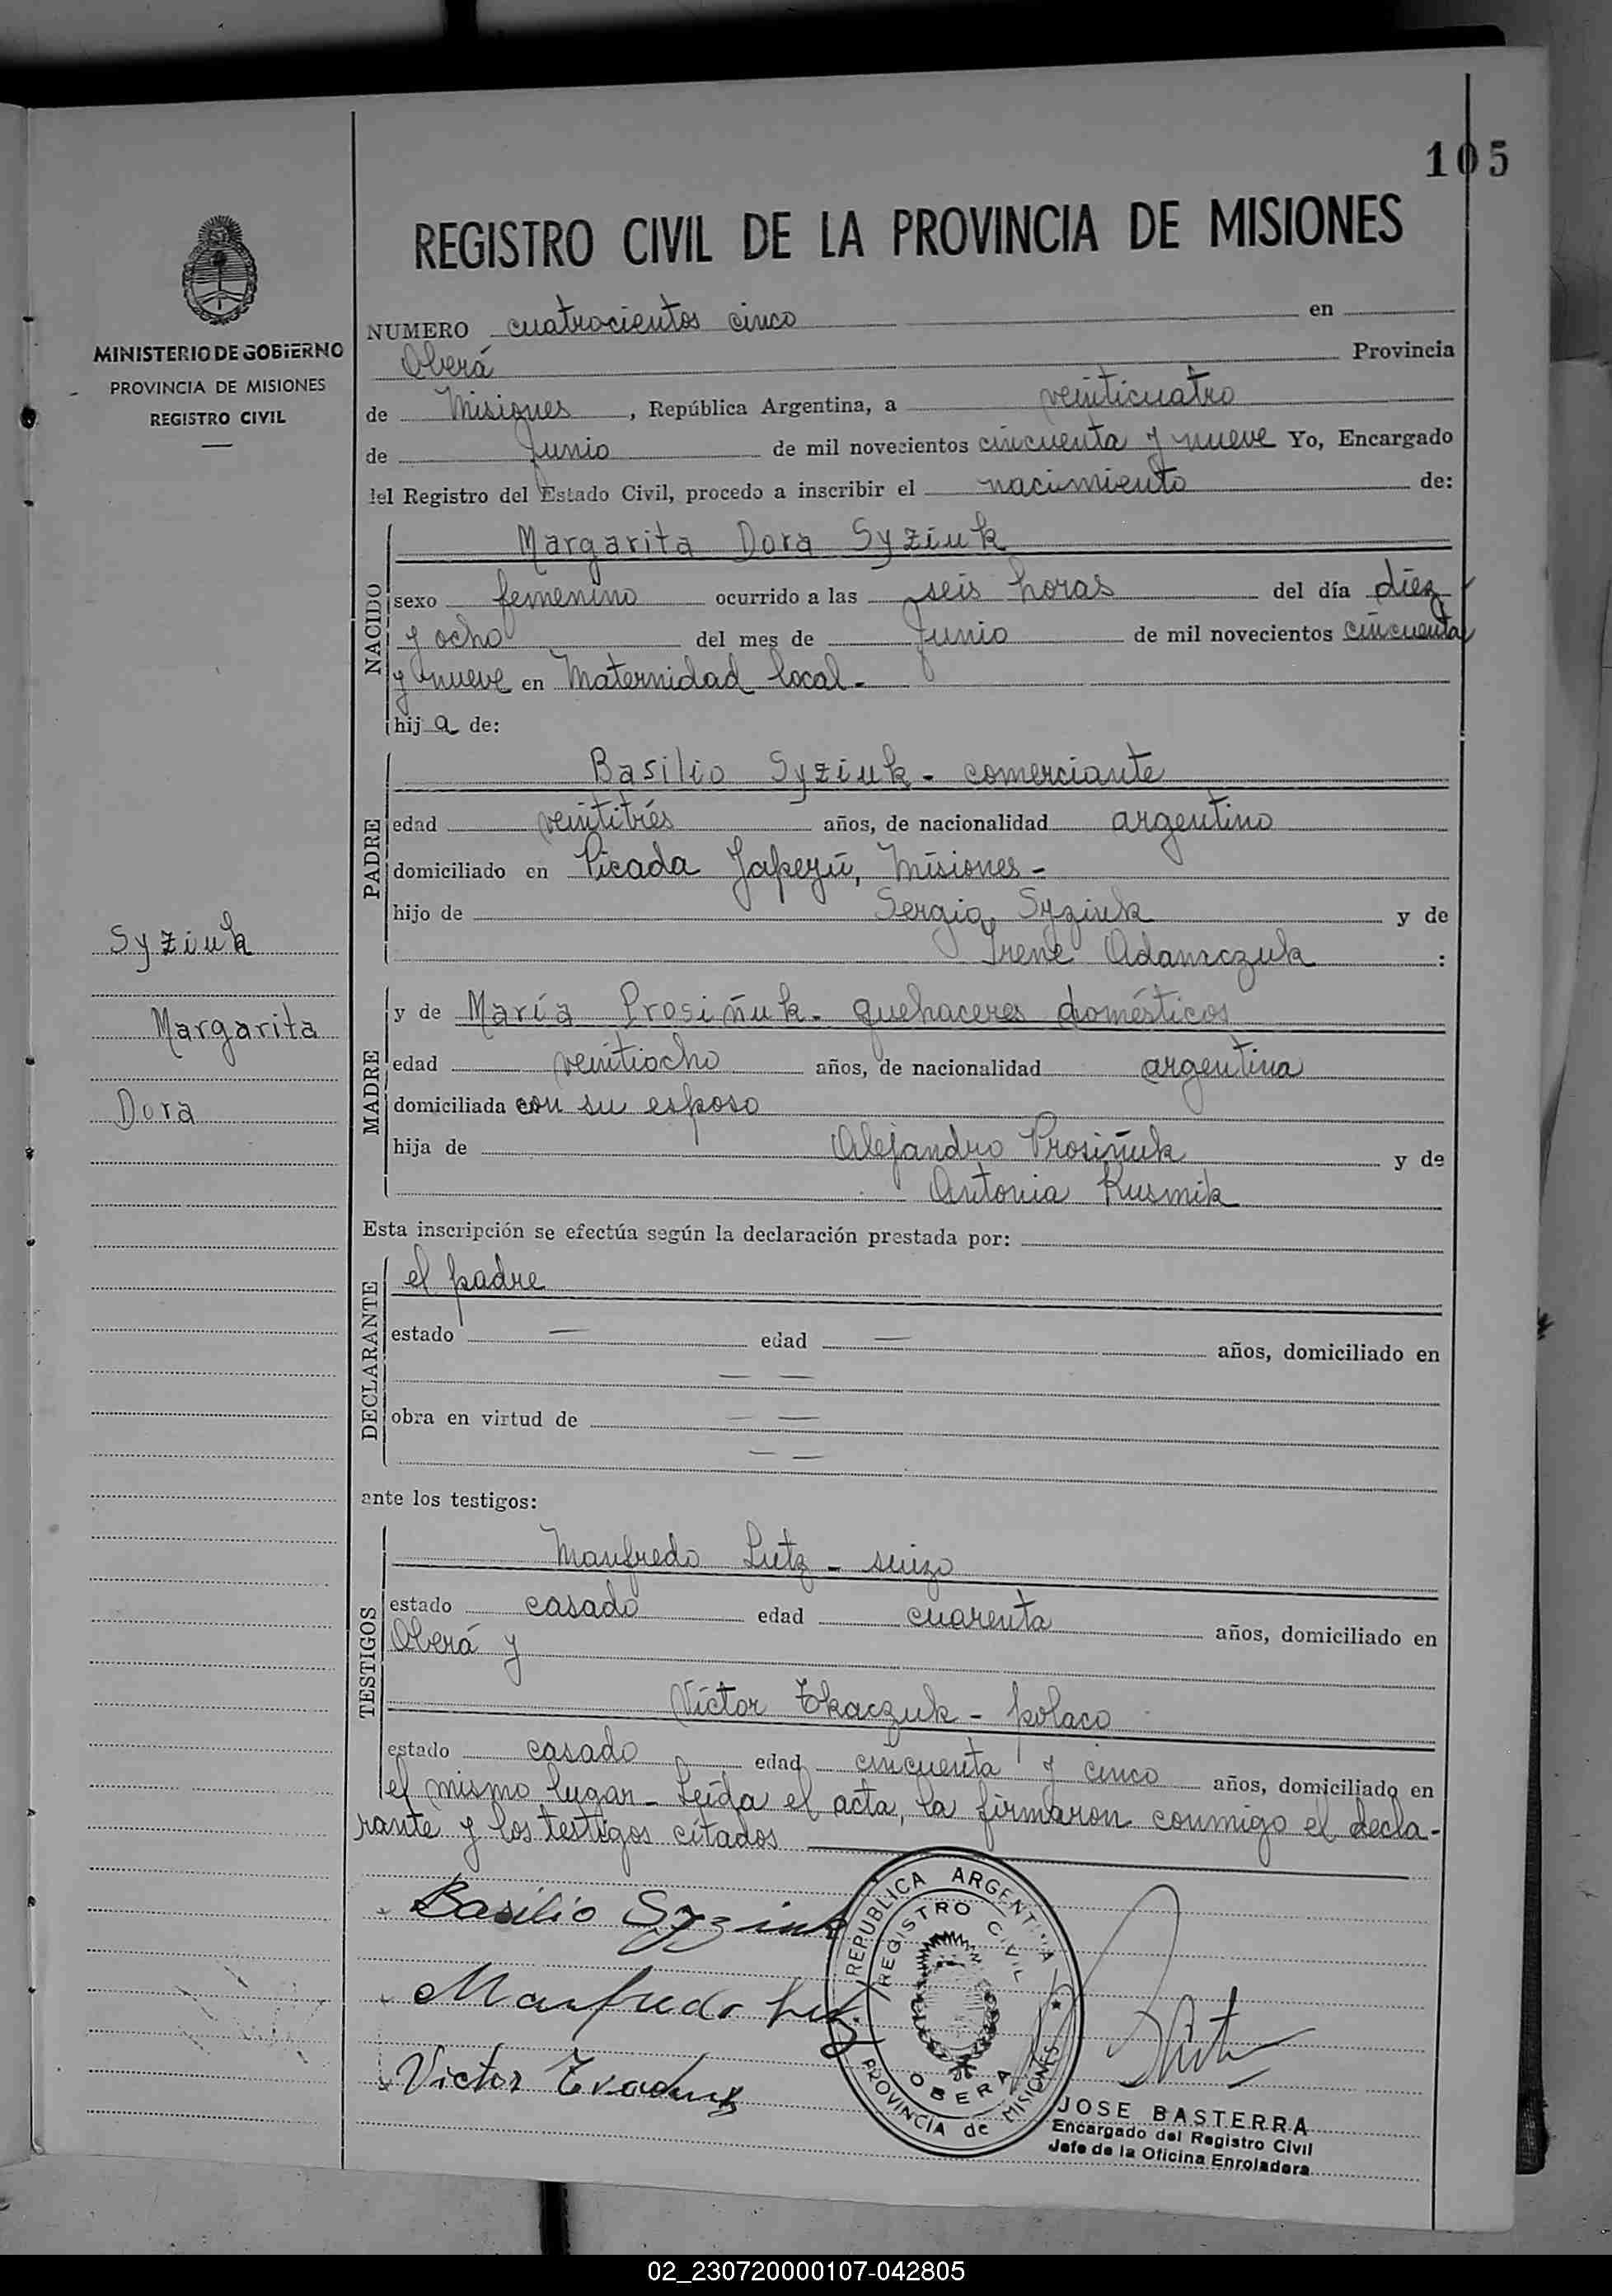 105
REGISTRO CIVIL DE LA PROVINCIA DE MISIONES
MINISTERIO DE GOBIERNO
PROVINCIA DE MISIONES
REGISTRO CIVIL
NUMERO cuatrocientos cinco en
Oberá Provincia
de Misiones, República Argentina, a veinticuatro
de Junio de mil novecientos cincuenta y nueve Yo, Encargado
del Registro del Estado Civil, procedo a inscribir el nacimiento de:
NACIDO
Margarita Dora Syziuk
sexo femenino ocurrido a las seis horas del día diez
y ocho del mes de Junio de mil novecientos cincuenta
y nueve en Maternidad local.-
hij a de:
PADRE
Basilio Syziuk - comerciante
edad veintitrés años, de nacionalidad argentino
domiciliado en Picada Japeyú, Misiones -
hijo de Sergio Syziuk y de
Irene Adamczuk :
Syziuk
Margarita
Dora
MADRE
y de María Prosiñuk - quehaceres domésticos
edad veintiocho años, de nacionalidad argentina
domiciliada con su esposo
hija de Alejandro Prosiñuk y de
Antonia Kusmik
Esta inscripción se efectúa según la declaración prestada por:
DECLARANTE
el padre
estado — edad — años, domiciliado en
— —
obra en virtud de — —
— —
ante los testigos:
TESTIGOS
Manfredo Lutz - suizo
estado casado edad cuarenta años, domiciliado en
Oberá y
Víctor Tkaczuk - polaco
estado casado edad cincuenta y cinco años, domiciliado en
el mismo lugar - Leída el acta, la firmaron conmigo el decla-
rante y los testigos citados
Basilio Syziuk
Manfredo Lutz
Victor
REPUBLICA ARGENTINA
REGISTRO CIVIL
OBERA
PROVINCIA de MISIONES
JOSE BASTERRA
Encargado del Registro Civil
Jefe de la Oficina Enroladora
02_230720000107-042805